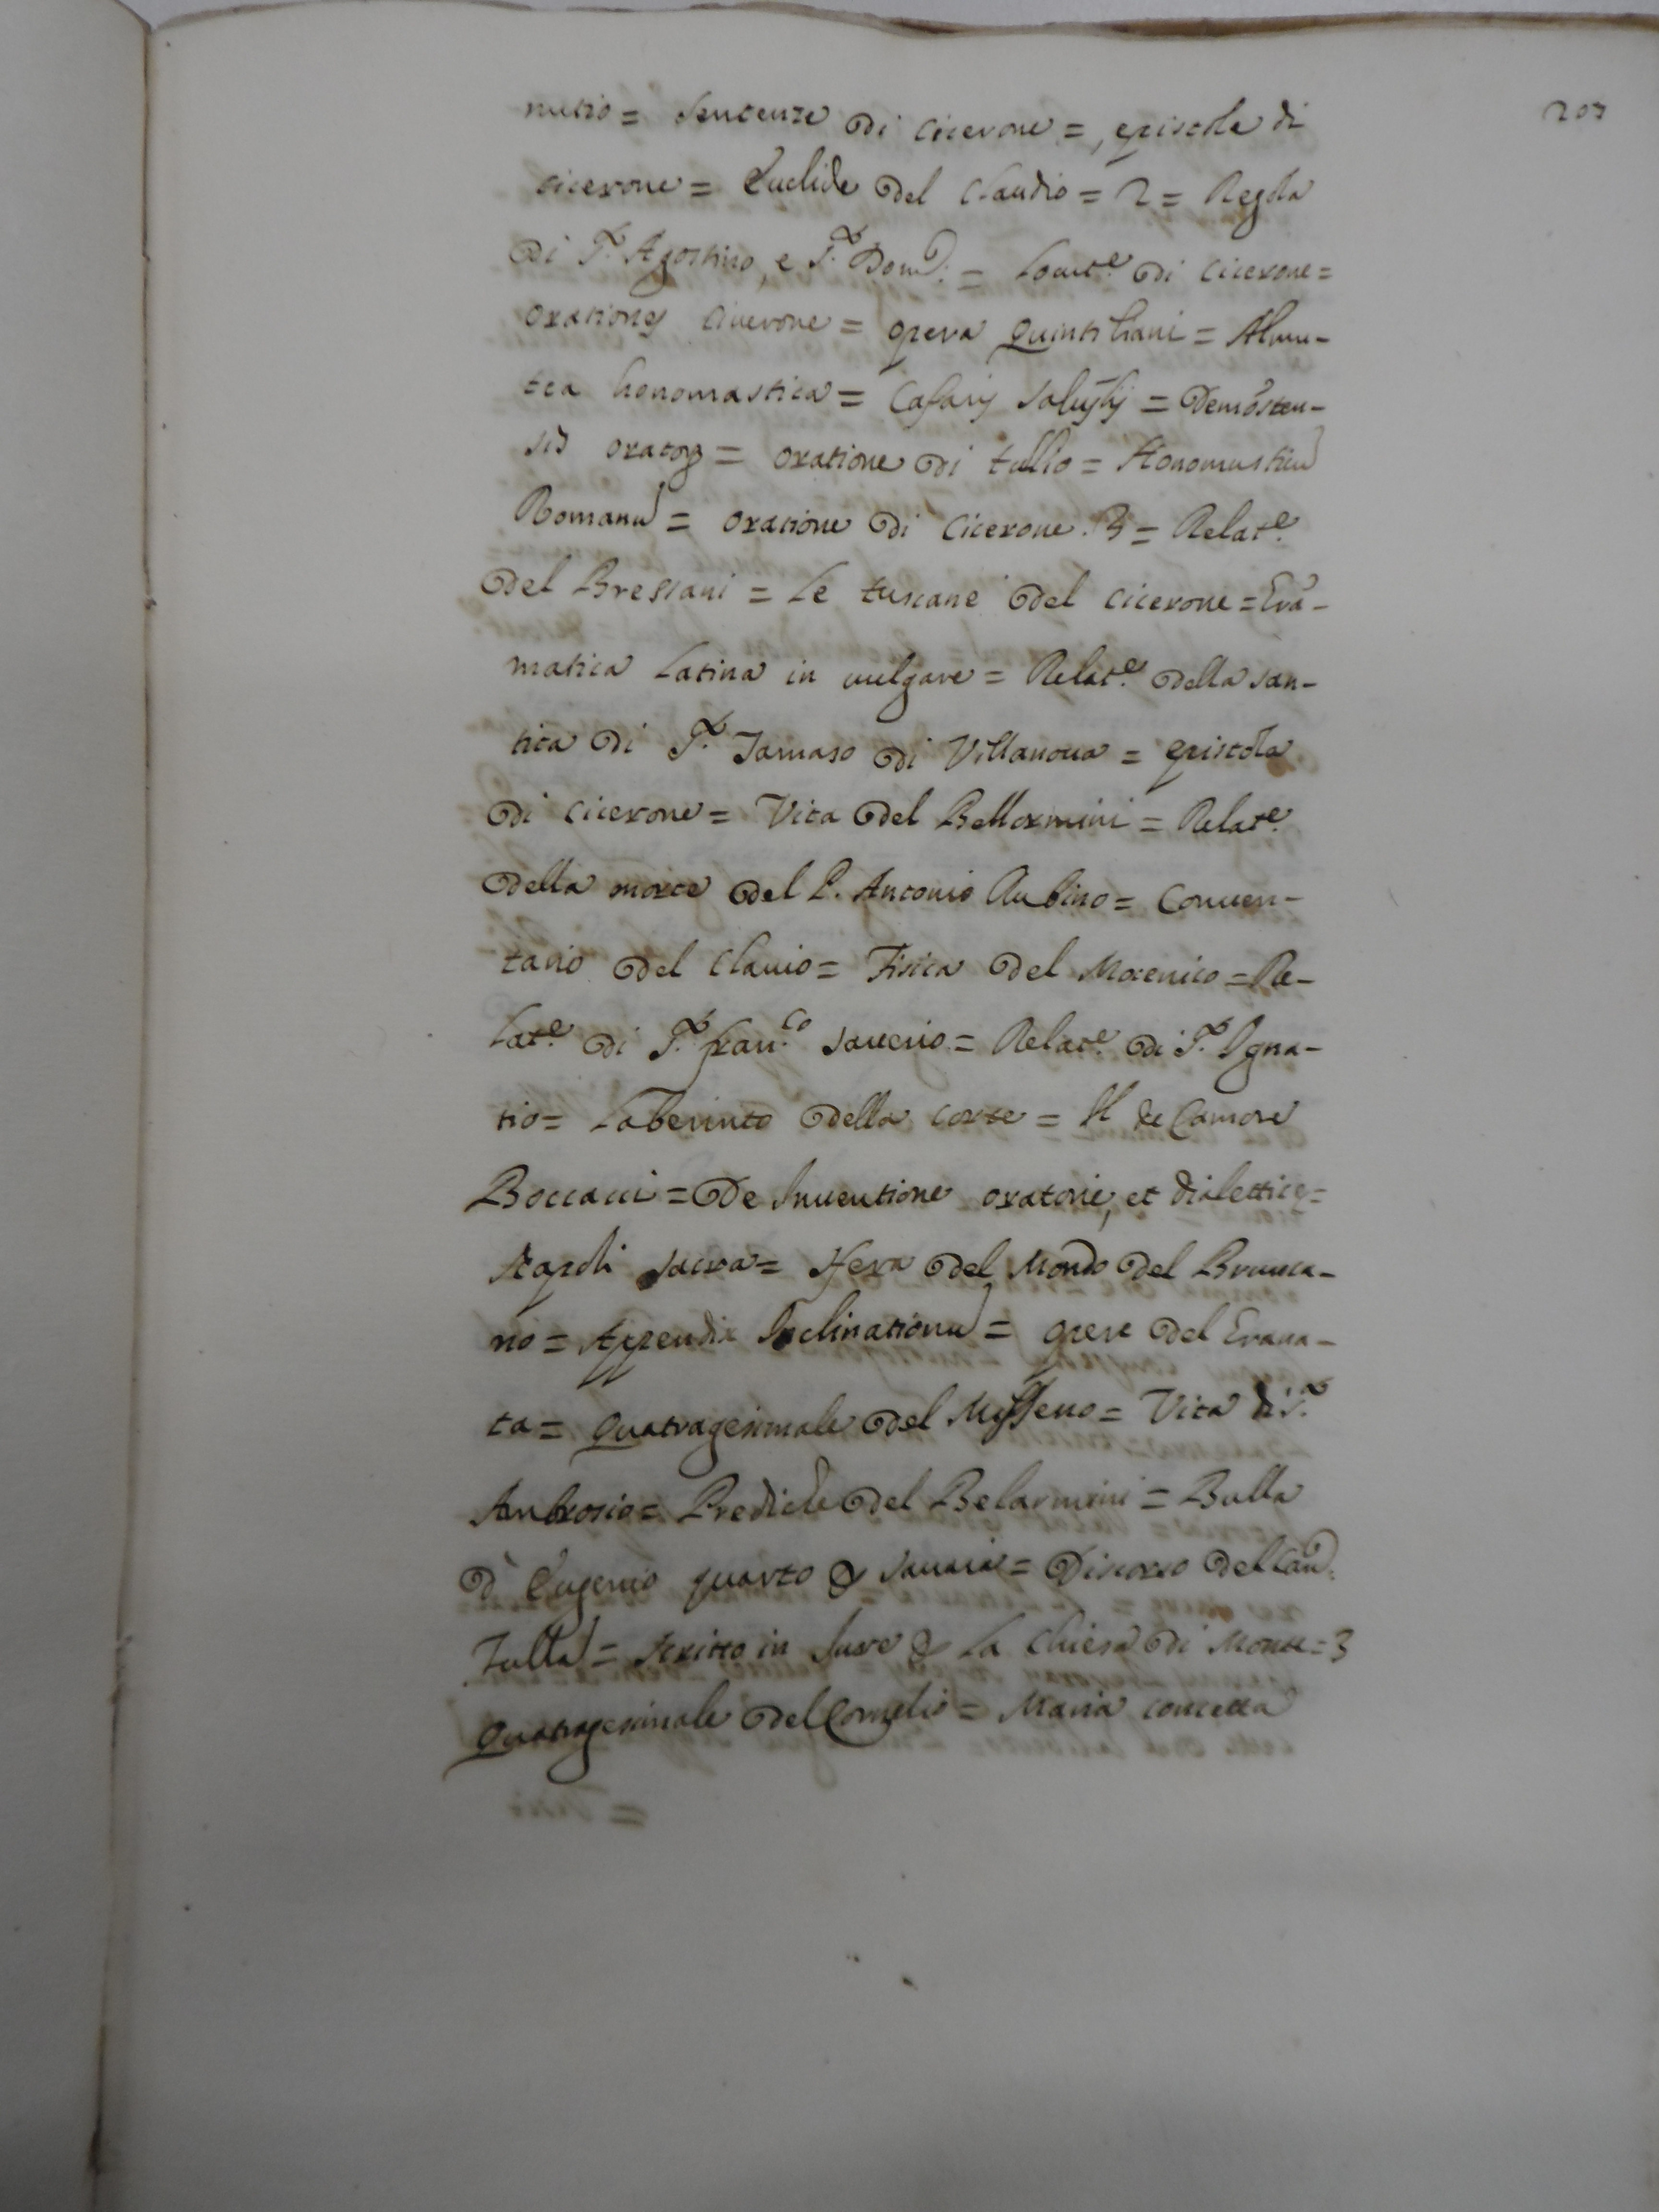 203
nutio = Sentenze di Cicerone =, epistole di
Cicerone = Euclide del Claudio = 2 = Regola
di S.to Agostino, e S.to Dom.co = Locut.e di Cicerone =
Orationes Cicerone = opera Quintiliani =
tea honomastica = Salustij = Demosten-
sis = oratione di tullio = Honomasticu
Romanu = oratione di Cicerone. 3 = Relat.e
del Bressani = Le tuscane del Cicerone = Gra-
matica Latina in vulgare = Relat.e della san-
tita di S.to Tomaso di Villanova = epistola
di Cicerone = Vita del Bellarmini = Relat.e
della morte del P. Antonio Rubino = Commen-
tario del Clavio = Fisica del = Re-
lat.e di S.to Fran.co Saverio = Relat.e di S.to Igna-
tio = Laberinto della corte = Il de Camore
Boccacci = De Inventione oratorie, et dialettice =
Napoli sacra = Sfera del Mondo del Branca-
no = Appendix Inclinationu = opere del Grana-
ta = Quatragesimale del Misseno = Vita di S.to
Ambrosio = Prediche del Belarmini = Bulla
d'Eugenio quarto = Discorso del Card.
= scritto in Iure La Chiesa di Monte = 3
Quatragesimale del Cornelio = Maria concetta